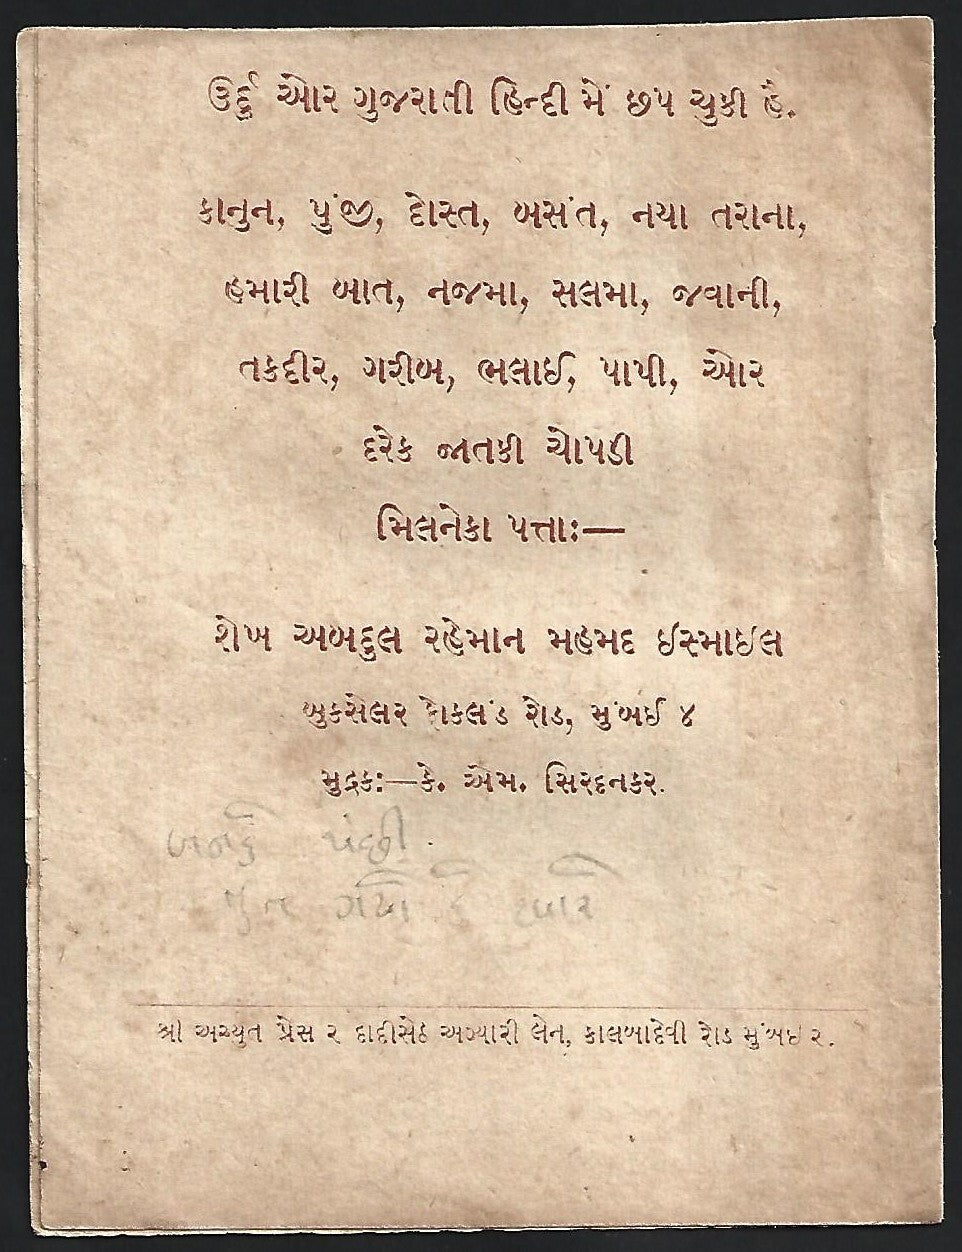 ઉર્દુ ઓર ગુજરાતી હિન્દી મેં છપ ચુકી હૈ.
કાનુન, પુંજી, દોસ્ત, બસંત, નયા તરાના,
હમારી બાત, નજમા, સલમા, જવાની,
તકદીર, ગરીબ, ભલાઈ, પાપી, ઓર
દરેક જાતકી ચોપડી
મિલનેકા પત્તાઃ—
શેખ અબદુલ રહેમાન મહમદ ઈસ્માઇલ
બુકસેલર ફોકલંડ રોડ, મુંબઈ ૪
મુદ્રકઃ—કે. એમ. સિરદનકર.
બનકે પંછી.
ગયે કે
શ્રી અચ્યુત પ્રેસ ૨ દાદીસેઠ અગ્યારી લેન, કાલબાદેવી રોડ મુંબઇ ૨.